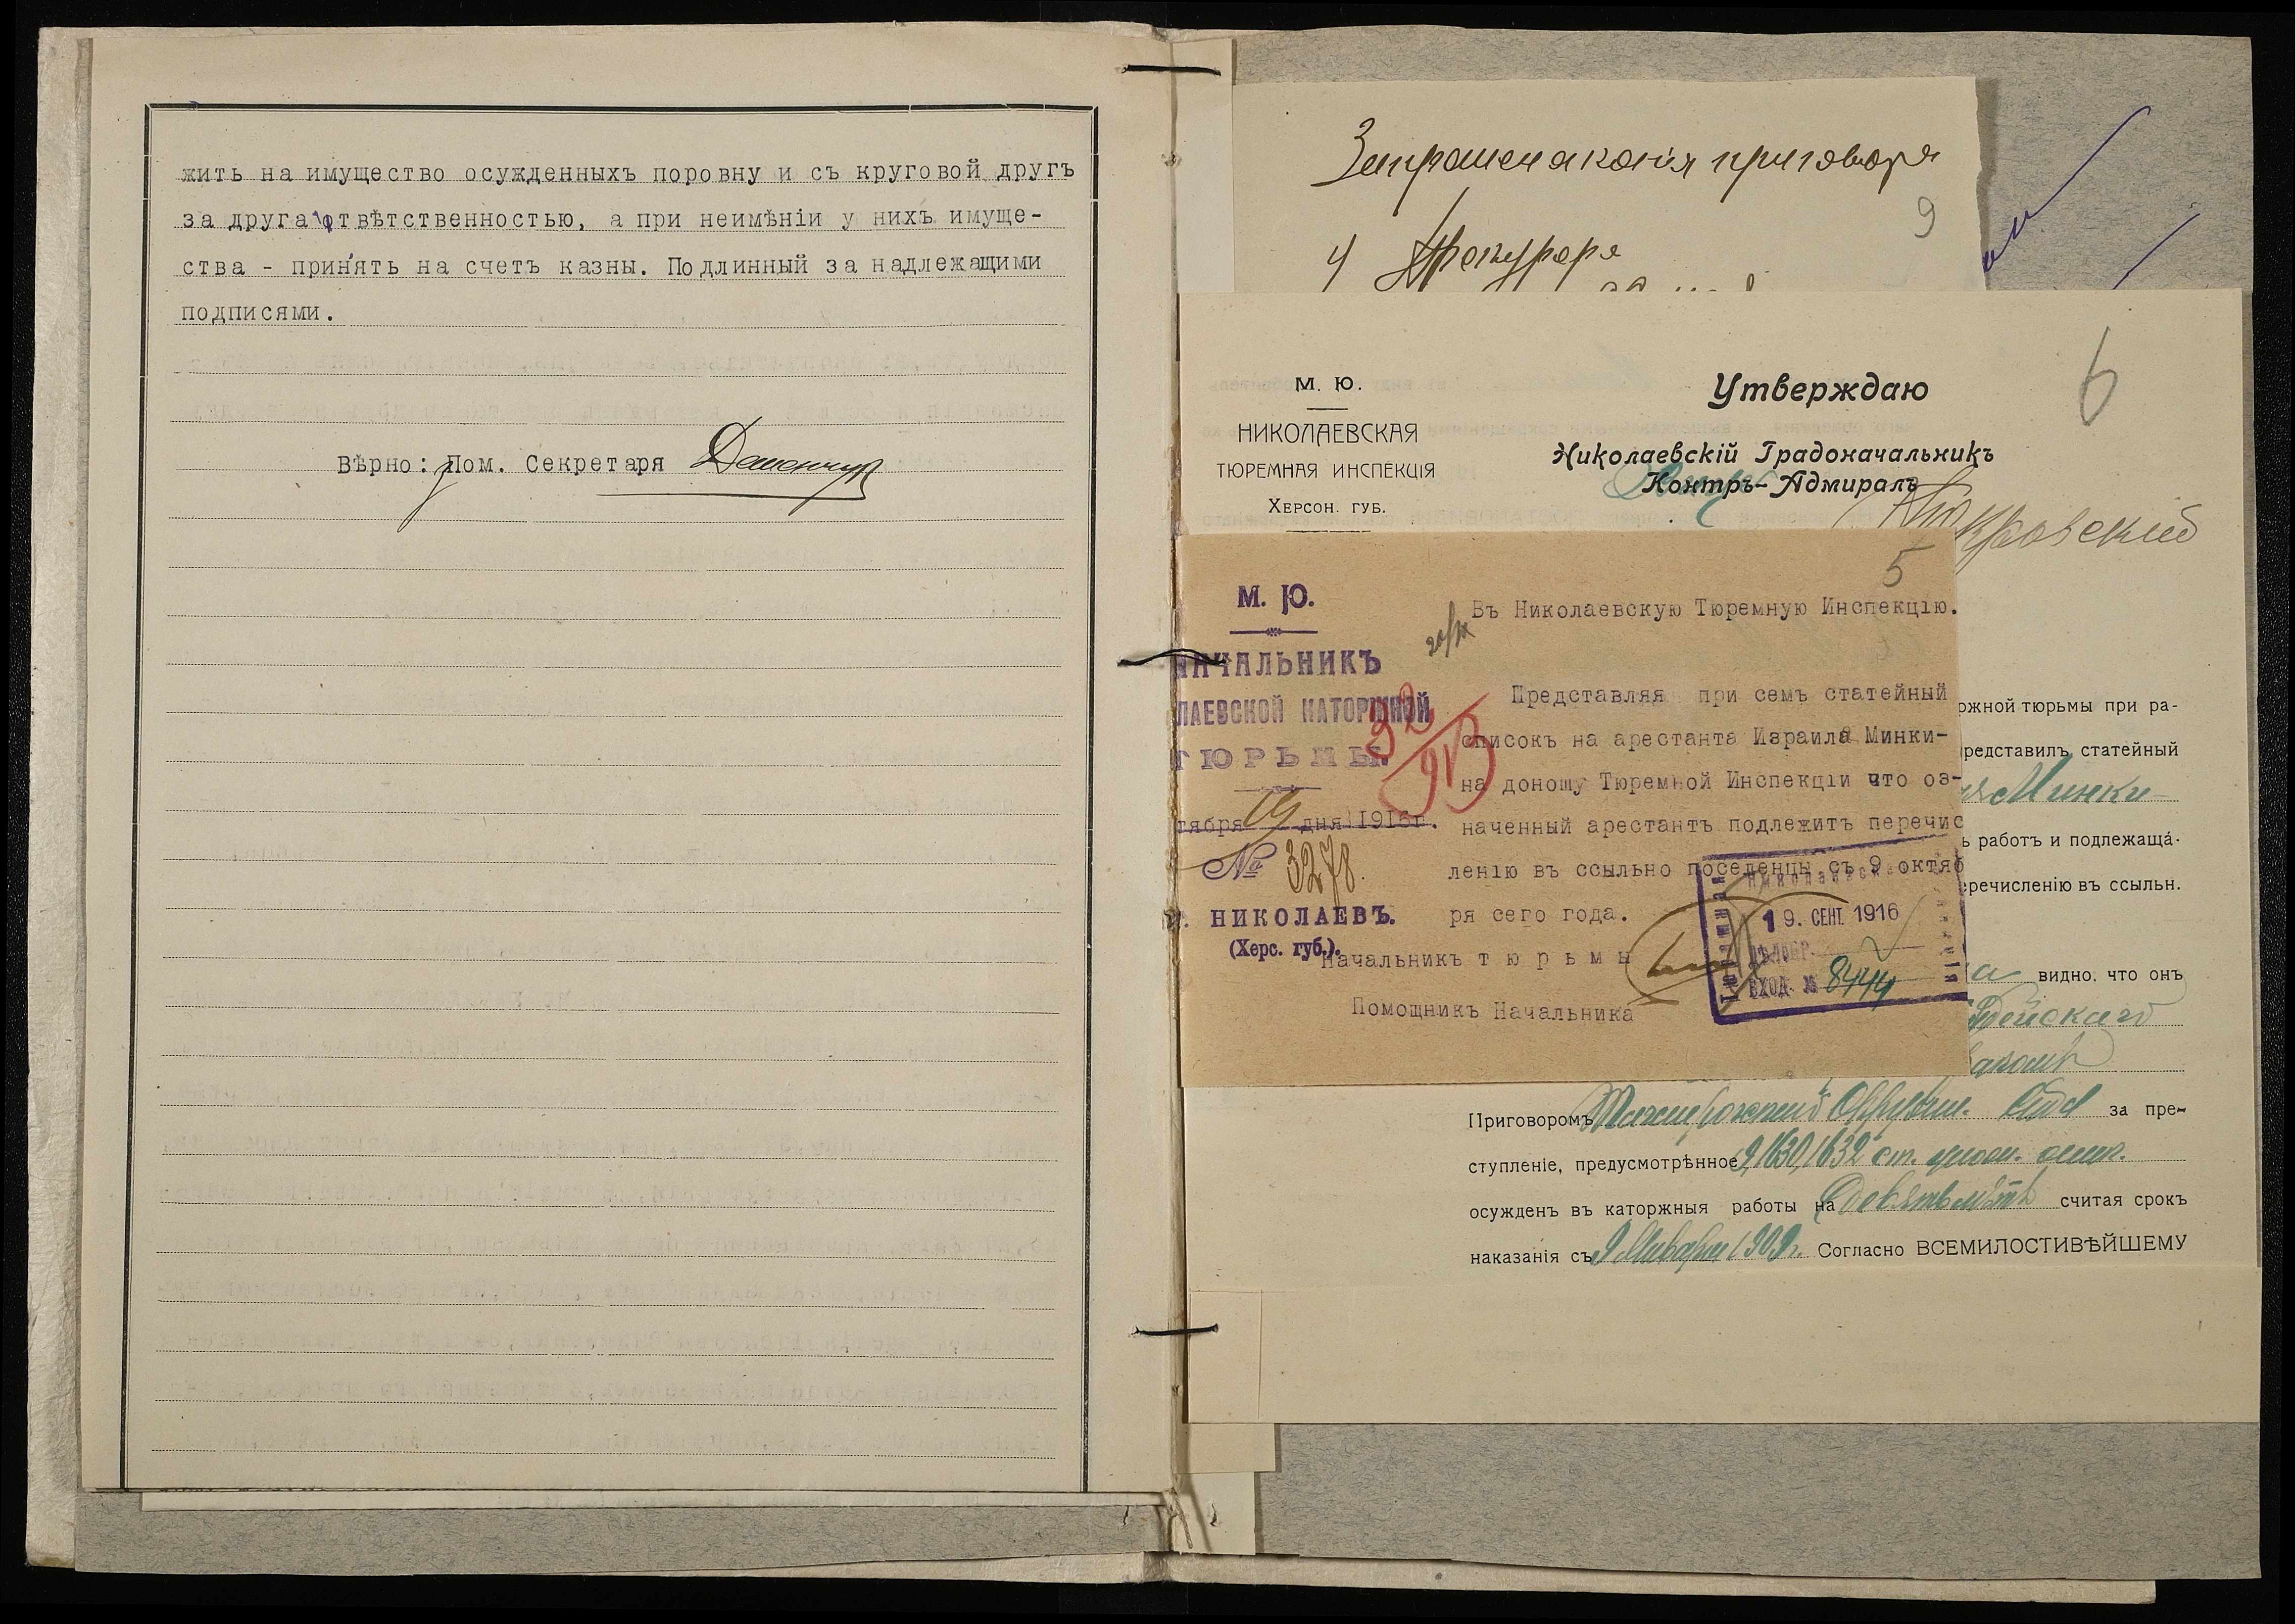 жить на имущество осужденныхъ поровну и съ круговой другъ
за друга отвѣтственностью, а при неимѣніи у нихъ имуще-
ства - принять на счетъ казны. Подлинный за надлежащими
подписями.
Вѣрно: Пом. Секретаря
Запрошена копія приговора
9
у Прокурора
6
М. Ю.
НИКОЛАЕВСКАЯ
ТЮРЕМНАЯ ИНСПЕКЦІЯ
Херсон. губ.
Утверждаю
Николаевскій Градоначальникъ
Контръ-Адмиралъ
5
М. Ю.
НАЧАЛЬНИКЪ
ЛАЕВСКОЙ КАТОРЖНОЙ
ТЮРЬМЫ.
тября 19 дня 1916г.
№ 3278.
НИКОЛАЕВЪ.
(Херс. губ.).
Въ Николаевскую Тюремную Инспекцію.
Представляя при семъ статейный
списокъ на арестанта Израиля Минки-
на доношу Тюремной Инспекціи что оз-
наченный арестантъ подлежитъ перечис
ленію въ ссыльно поселенцы съ 9 октяб
ря сего года.
Начальникъ тюрьмы
Помощникъ Начальника
19. СЕНТ. 1916
ВХОД. № 8444
ожной тюрьмы при ра-
редставилъ статейный
Минки-
ъ работ и подлежаща-
еречисленію въ ссыльн.
а видно, что онъ
Приговоромъ Окружн. Суда за пре-
ступленіе, предусмотрѣнное 9, 1630, 1632 ст. улож. о нак.
осужденъ въ каторжныя работы на девять лѣтъ считая срокъ
наказанія съ 9 Января 1909г. Согласно ВСЕМИЛОСТИВѢЙШЕМУ